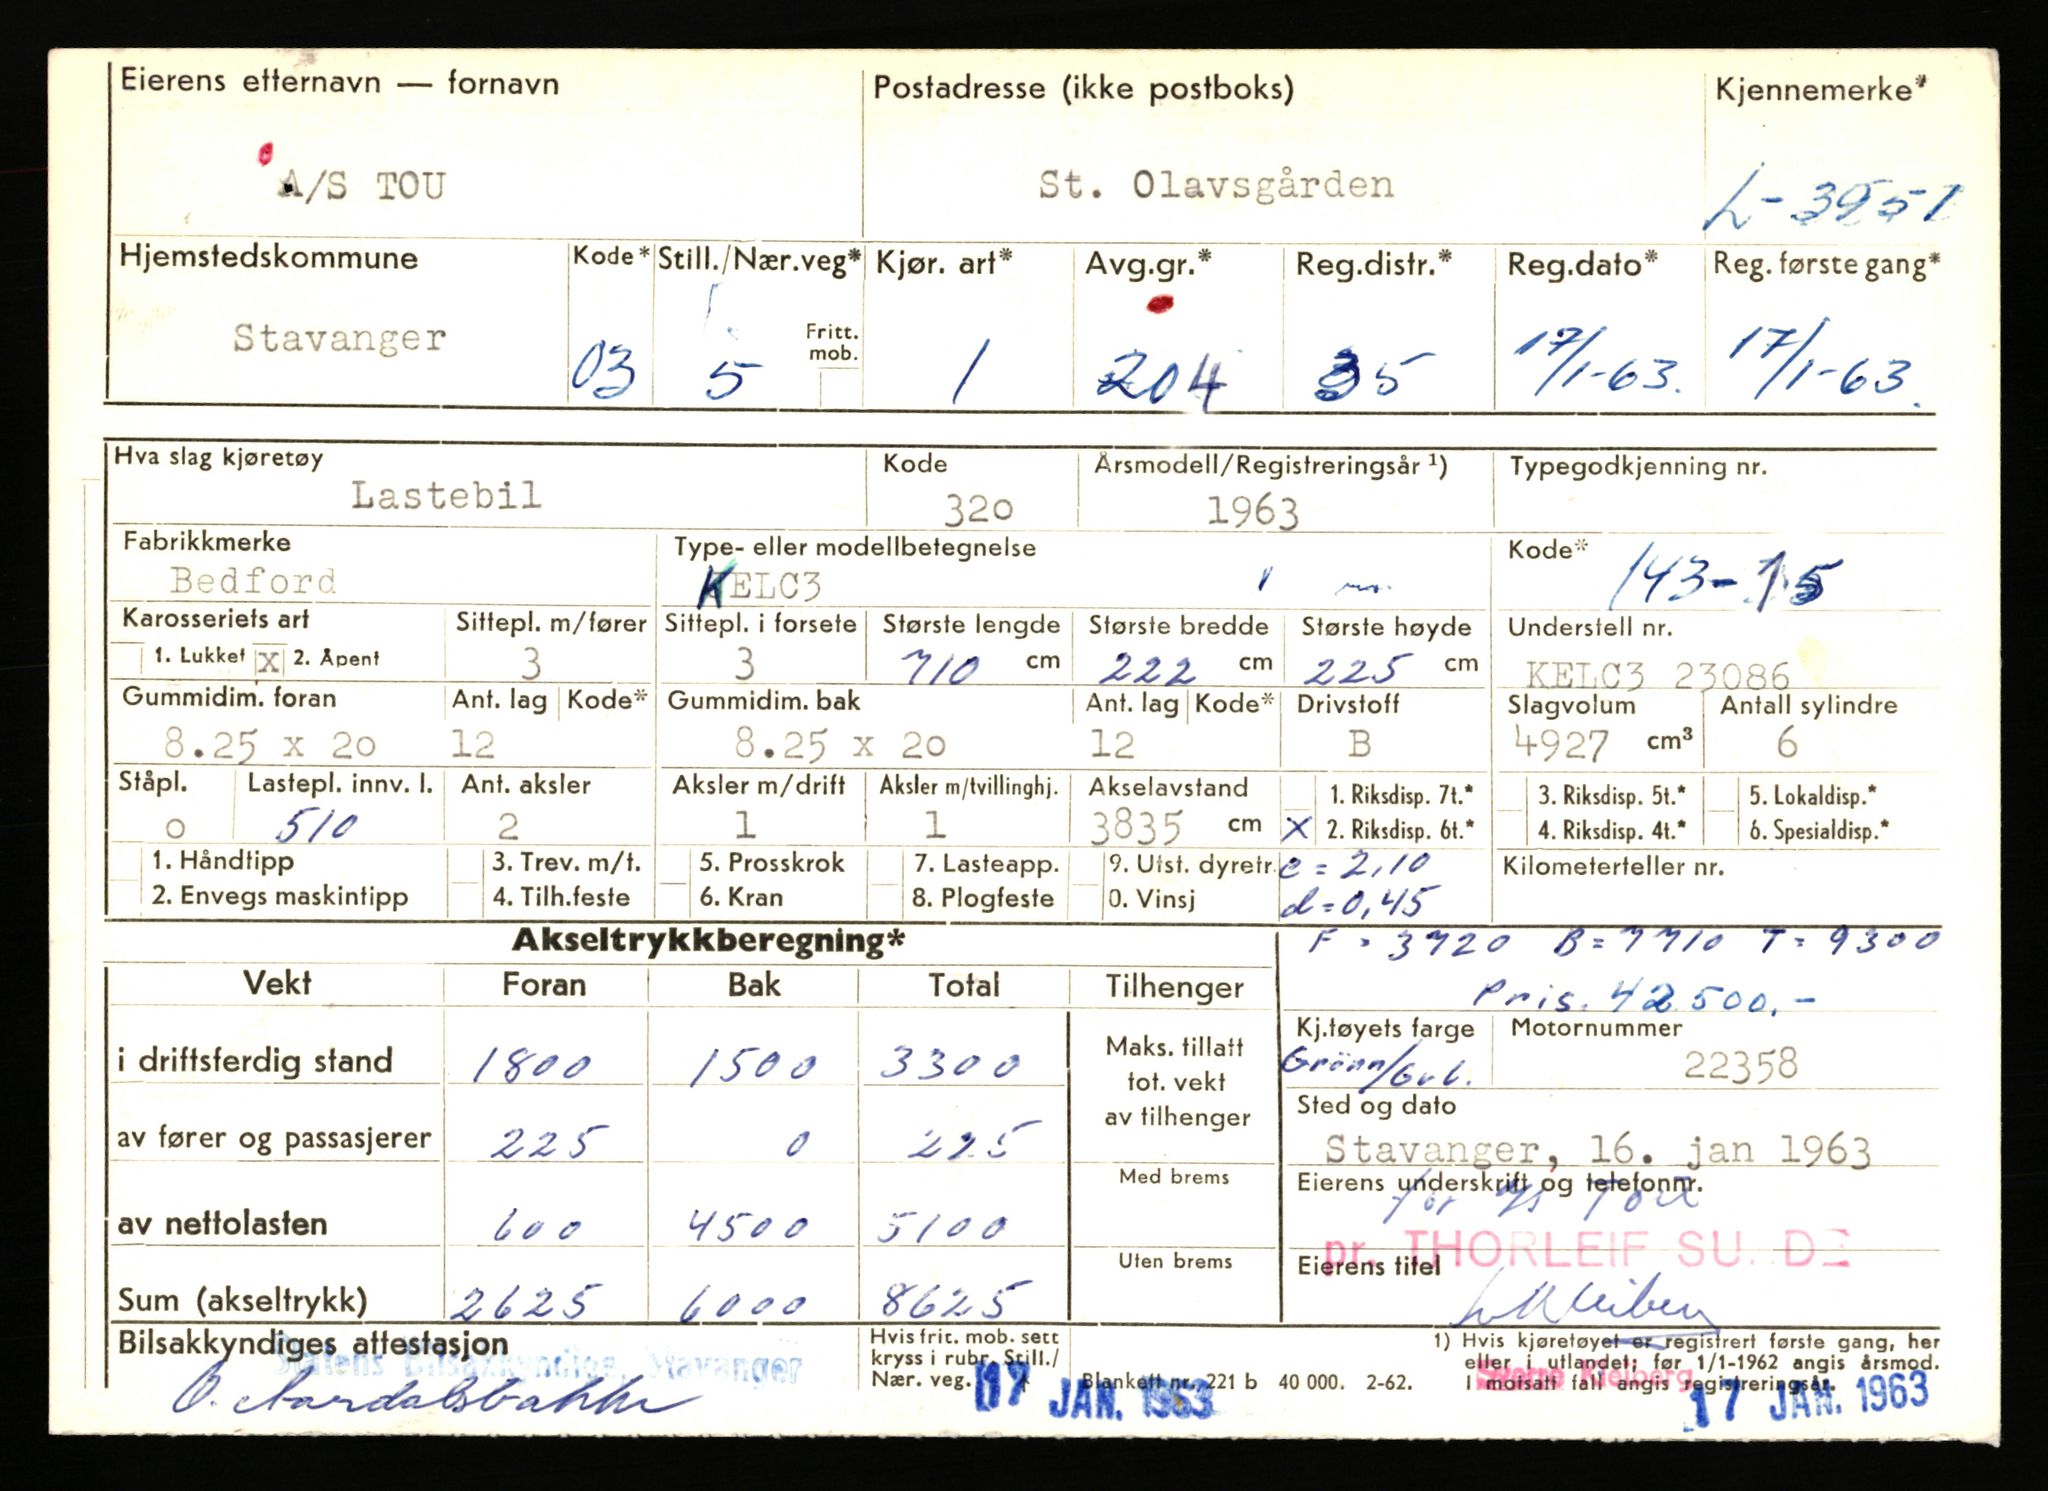 Eierens etternavn — fornavn Postadresse (ikke postboks) Kjennemerke*
A/S TOU St. Olavsgården L-3951
Hjemstedskommune Kode* Still./Nær.veg* Kjør. art* Avg.gr.* Reg.distr.* Reg.dato* Reg. første gang*
Stavanger 03 5 Fritt. mob. 1 204 35 17/1-63. 17/1-63.
Hva slag kjøretøy Kode Årsmodell/Registreringsår ¹) Typegodkjenning nr.
Lastebil 320 1963
Fabrikkmerke Type- eller modellbetegnelse Kode*
Bedford KELC3 143-15
Karosseriets art Sittepl. m/fører Sittepl. i forsete Største lengde Største bredde Største høyde Understell nr.
1. Lukket x 2. Åpent 3 3 710 cm 222 cm 225 cm KELC3 23086
Gummidim. foran Ant. lag Kode* Gummidim. bak Ant. lag Kode* Drivstoff Slagvolum Antall sylindre
8.25 x 20 12 8.25 x 20 12 B 4927 cm³ 6
Ståpl. Lastepl. innv. l. Ant. aksler Aksler m/drift Aksler m/tvillinghj. Akselavstand 1. Riksdisp. 7t.* 3. Riksdisp. 5t.* 5. Lokaldisp.*
0 510 2 1 1 3835 cm X 2. Riksdisp. 6t.* 4. Riksdisp. 4t.* 6. Spesialdisp.*
1. Håndtipp 3. Trev. m/t. 5. Prosskrok 7. Lasteapp. 9. Utst. dyretr. c = 2,10 Kilometerteller nr.
2. Envegs maskintipp 4. Tilh.feste 6. Kran 8. Plogfeste 0. Vinsj d = 0,45
Akseltrykkberegning* F = 3720 B = 7710 T = 9300
Vekt Foran Bak Total Tilhenger Pris. 42500.-
i driftsferdig stand 1800 1500 3300 Maks. tillatt tot. vekt av tilhenger
Kj.tøyets farge Motornummer
Grönn/Gul. 22358
av fører og passasjerer 225 0 225
Sted og dato
Stavanger, 16. jan 1963
Med brems Eierens underskrift og telefonnr.
for A/S Tou
av nettolasten 600 4500 5100
pr. THORLEIF SU DE
Uten brems Eierens titel
Sum (akseltrykk) 2625 6000 8625
Bilsakkyndiges attestasjon
Statens Bilsakkyndige, Stavanger
O. Aardalsbakke
Hvis frit. mob. sett
kryss i rubr. Still./
Nær. veg.
17 JAN. 1963
Blankett nr. 221 b 40 000. 2-62.
1) Hvis kjøretøyet er registrert første gang, her
eller i utlandet; før 1/1-1962 angis årsmod.
I motsatt fall angis registreringsår.
Kielberg
17 JAN. 1963